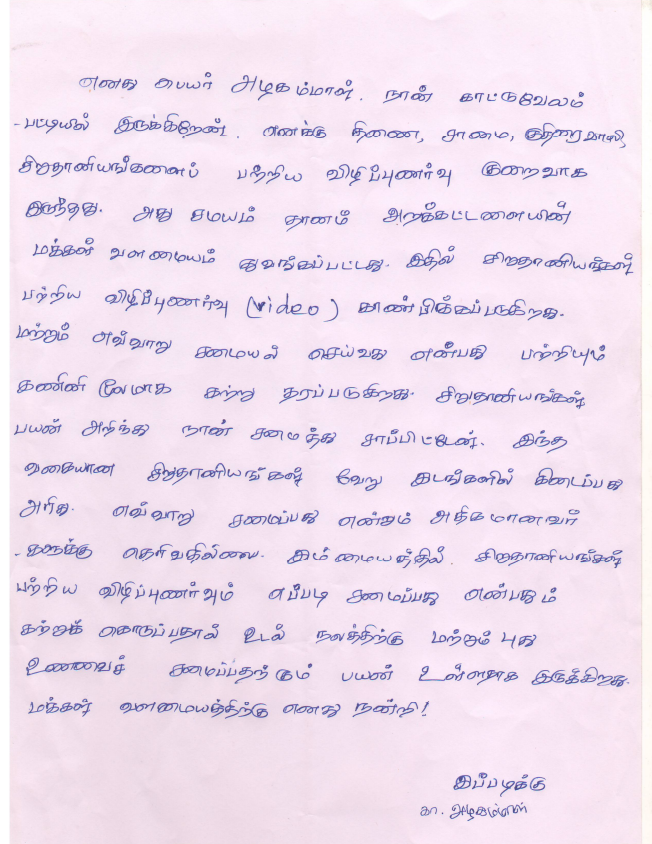 எனது பெயர் அழகம்மாள். நான் காட்டுவேலம்
-பட்டியில் இருக்கிறேன். எனக்கு தினை, சாமை, குதிரைவாலி,
சிறுதானியங்களைப் பற்றிய விழிப்புணர்வு குறைவாக
இருந்தது. அது சமயம் தானம் அறக்கட்டளையின்
மக்கள் வளமையம் துவங்கப்பட்டது. இதில் சிறுதானியங்கள்
பற்றிய விழிப்புணர்வு (video) காண்பிக்கப்படுகிறது.
மற்றும் எவ்வாறு சமையல் செய்வது என்பது பற்றியும்
கணினி மூலமாக கற்று தரப்படுகிறது. சிறுதானியங்கள்
பயன் அறிந்து நான் சமைத்து சாப்பிட்டேன். இந்த
வகையான சிறுதானியங்கள் வேறு இடங்களில் கிடைப்பது
அரிது. எவ்வாறு சமைப்பது என்றும் அதிகமானவர்
-களுக்கு தெரிவதில்லை. இம்மையத்தில். சிறுதானியங்கள்
பற்றிய விழிப்புணர்வும் எப்படி சமைப்பது என்பதும்
கற்றுக் கொடுப்பதால் உடல் நலத்திற்கு மற்றும் புது
உணவைச் சமைப்பதற்கும் பயன் உள்ளதாக இருக்கிறது.
மக்கள் வளமையத்திற்கு எனது நன்றி!
இப்படிக்கு
கா. அழகம்மாள்